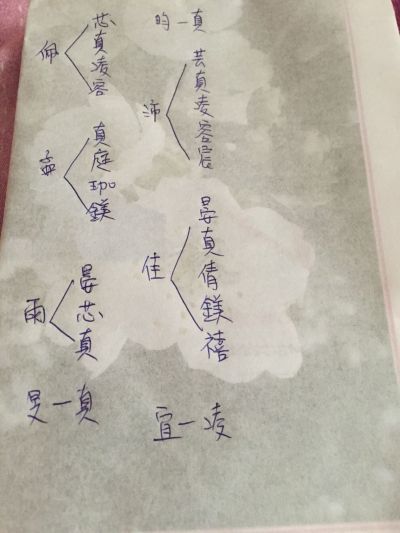 佩 芯真凌容
孟 真庭珈鎂
雨 晏芯真
旻—真
昀—真
沛 芸真凌容宸
佳 晏真倩鎂禧
宜—凌